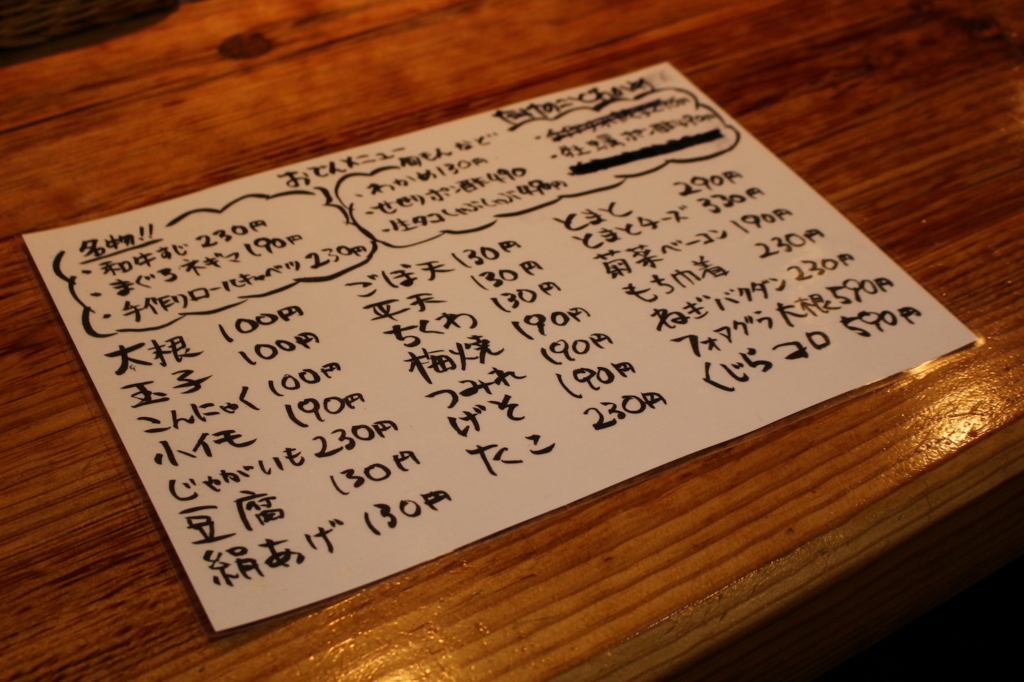 おでんメニュー
名物!!
・和牛すじ 230円
・まぐろネギマ 190円
・手作りロールキャベツ 230円
・わかめ130円
・せせりポン酢490
・生タコしゃぶしゃぶ490円
大根 100円
玉子 100円
こんにゃく 100円
小イモ 190円
じゃがいも 230円
豆腐 130円
絹あげ 130円
ごぼ天 130円
平天 130円
ちくわ 130円
梅焼 190円
つみれ 190円
げそ 190円
たこ 230円
とまと 290円
とまとチーズ 330円
菊菜ベーコン 190円
もち巾着 230円
ねぎバクダン 230円
フォアグラ大根590円
くじらコロ 590円